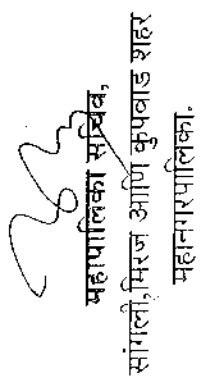 महापालिका सचिव,
सांगली,मिरज आणि कुपवाड शहर
महानगरपालिका.